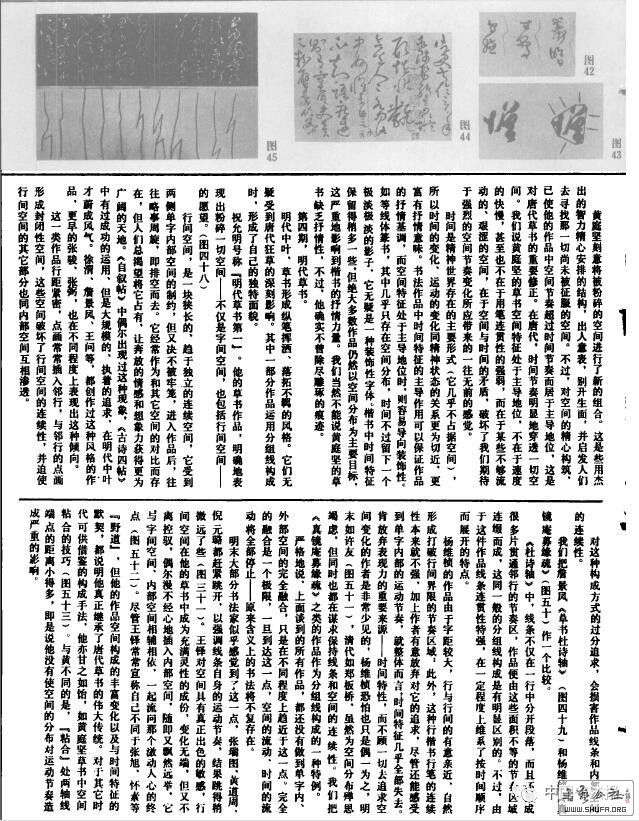 图42
图43
图44
图45
黄庭坚刻意将被粉碎的空间进行了新的组合。这是些用杰
出的智力精心安排的结构，出人意表，别开生面，并启发人们
去寻找那一切尚未被征服的空间。不过，对空间的精心构筑，
已使他的作品中空间节奏超过时间节奏而居于主导地位，这是
对唐代草书的重要修正。在唐代，时间节奏明显地穿透一切空
间。我们说黄庭坚的草书空间特征处于主导地位，不在于速度
的快慢，甚至也不在于用笔连贯性的强弱，而在于某些不够流
动的、艰涩的空间，在于空间与时间的矛盾，破坏了我们期待
于强烈的空间节奏变化所应带来的一往无前的感觉。
时间是精神世界存在的主要形式（它几乎不占据空间），
所以时间的变化、运动的变化同精神状态的关系更为切近，更
富有抒情意味。书法作品中时间特征的主导作用可以保证作品
的抒情基调，而空间特征处于主导地位时，则容易导向装饰性。
如等线体篆书，其中几乎只存在空间分布，时间不过留下一个
极淡极淡的影子，它无疑是一种装饰性字体。楷书中时间特征
保留得稍多一些，但绝大多数作品仍然以空间分布为主要目标，
这严重地影响到楷书的抒情力量。我们当然不能说黄庭坚的草
书缺乏抒情性，不过，他确实不曾除尽雕琢的痕迹。
第四期，明代草书。
明代中叶，草书形成纵笔挥洒、落拓不羁的风格。它们无
疑受到唐代狂草的深刻影响。其中一部分作品运用分组线构成
时，形成了自己的独特面貌。
祝允明号称『明代草书第一』，他的草书作品，明确地表
现出粉碎一切空间——不仅是字间空间，也包括行间空间——
的愿望。（图四十八）
行间空间，是一块狭长的、趋于独立的连续空间，它受到
两侧单字内部空间的制约，但又决不被牢笼，进入作品后，往
往略事周旋，即排空而去。它经常作为和其它空间的对比而存
在，但人们总渴望将它占有，让奔放的情感和想象力获得更为
广阔的天地。《自叙帖》中偶尔出现过这种现象，《古诗四帖》
中有过成功的运用，但是大规模的、执着的追求，在明代中叶
才蔚成风气。徐渭、詹景风、王问等，都创作过这种风格的作
品，更早的张骏、张弼，也在不同程度上表现出这种倾向。
这一类作品行距紧密，点画常常插入邻行，与邻行的点画
形成封闭性空间，这些空间破坏了行间空间的连续性，并迫使
行间空间的其它部分也同内部空间互相渗透。
对这种构成方式的过分追求，会损害作品线条和内
的连续性。
我们把詹景风《草书杜诗轴》（图四十九）和杨维
镜庵募缘疏》（图五十）作一个比较。
《杜诗轴》中，线条不仅在一行中分开段落，而且还
很多片贯通邻行的节奏区，作品便由这些面积不等的节奏区域
连缀而成，这同一般的分组线构成是有明显区别的。不过，由
于这件作品线条的连贯性特强，在一定程度上维系了按时间顺序
而展开的特点。
杨维桢的作品由于字距较大，行与行间的有意亲近，自然
形成打破行间界限的节奏区域，此外，这种行楷书行笔的连续
性本来就不强，加上作者有意放弃对它的追求，尽管还能感受
到单字内部的运动节奏，就整体而言，时间特征几乎全部失去。
肯放弃表现力的重要来源——时间特征，而不顾一切去追求空
间变化的作者是非常少见的，杨维桢恐怕也只是偶一为之，明
末如许友（图五十一），清代如郑板桥，虽然为空间分布殚思
竭虑，但同时也都在谋求保持线条和空间的连续性。我们把
《真镜庵募缘疏》之类的作品作为分组线构成的一种特例。
严格地说，上面谈到的所有作品，都还没有做到单字内、
外部空间的完全融合，只是在不同程度上趋近于这一点。完全
的融合是一个极限，一旦到达这一点，空间的流动、时间的流
动将全部停止，原来含义上的书法将不复存在。
明末大部分书法家似乎感觉到了这一点，张瑞图、黄道周、
倪元璐都赶紧跳开，以强调线条自身的运动节奏，结果跳得稍
微远了些（图三十一）。王铎对空间具有真正出色的敏感，行
间空间在他的草书中成为充满灵性的成份，变化无端，但又不
离控驭，偶尔漫不经心地插入内部空间，随即又飘然远举，它
与字间空间、内部空间相辅相依，一起流向那个激动人心的终
点（图五十二）。尽管王铎常常宣称自己不同于张旭、怀素等
『野道』，但他的作品空间构成的丰富变化以及与时间特征的
默契，都说明他真正继承了唐代草书的伟大传统。对于其它时
代可供借鉴的构成手法，他亦甘之如饴，如黄庭坚草书中空间
粘合的技巧（图五十三）。与黄不同的是，『粘合』处两轴线
端点的距离小得多，即是说他没有使空间的分布对运动节奏造
成严重的影响。
WWW.SHUFA.ORG